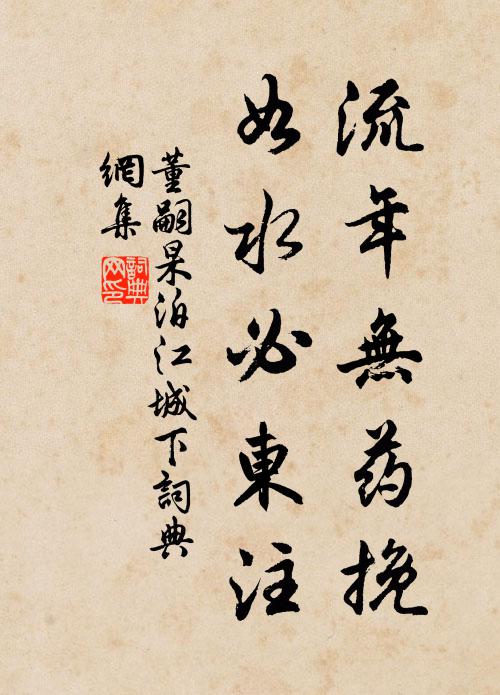 流年無药挽
如水必東注
董嗣杲泊江城下詞典
網集
詞典
网印